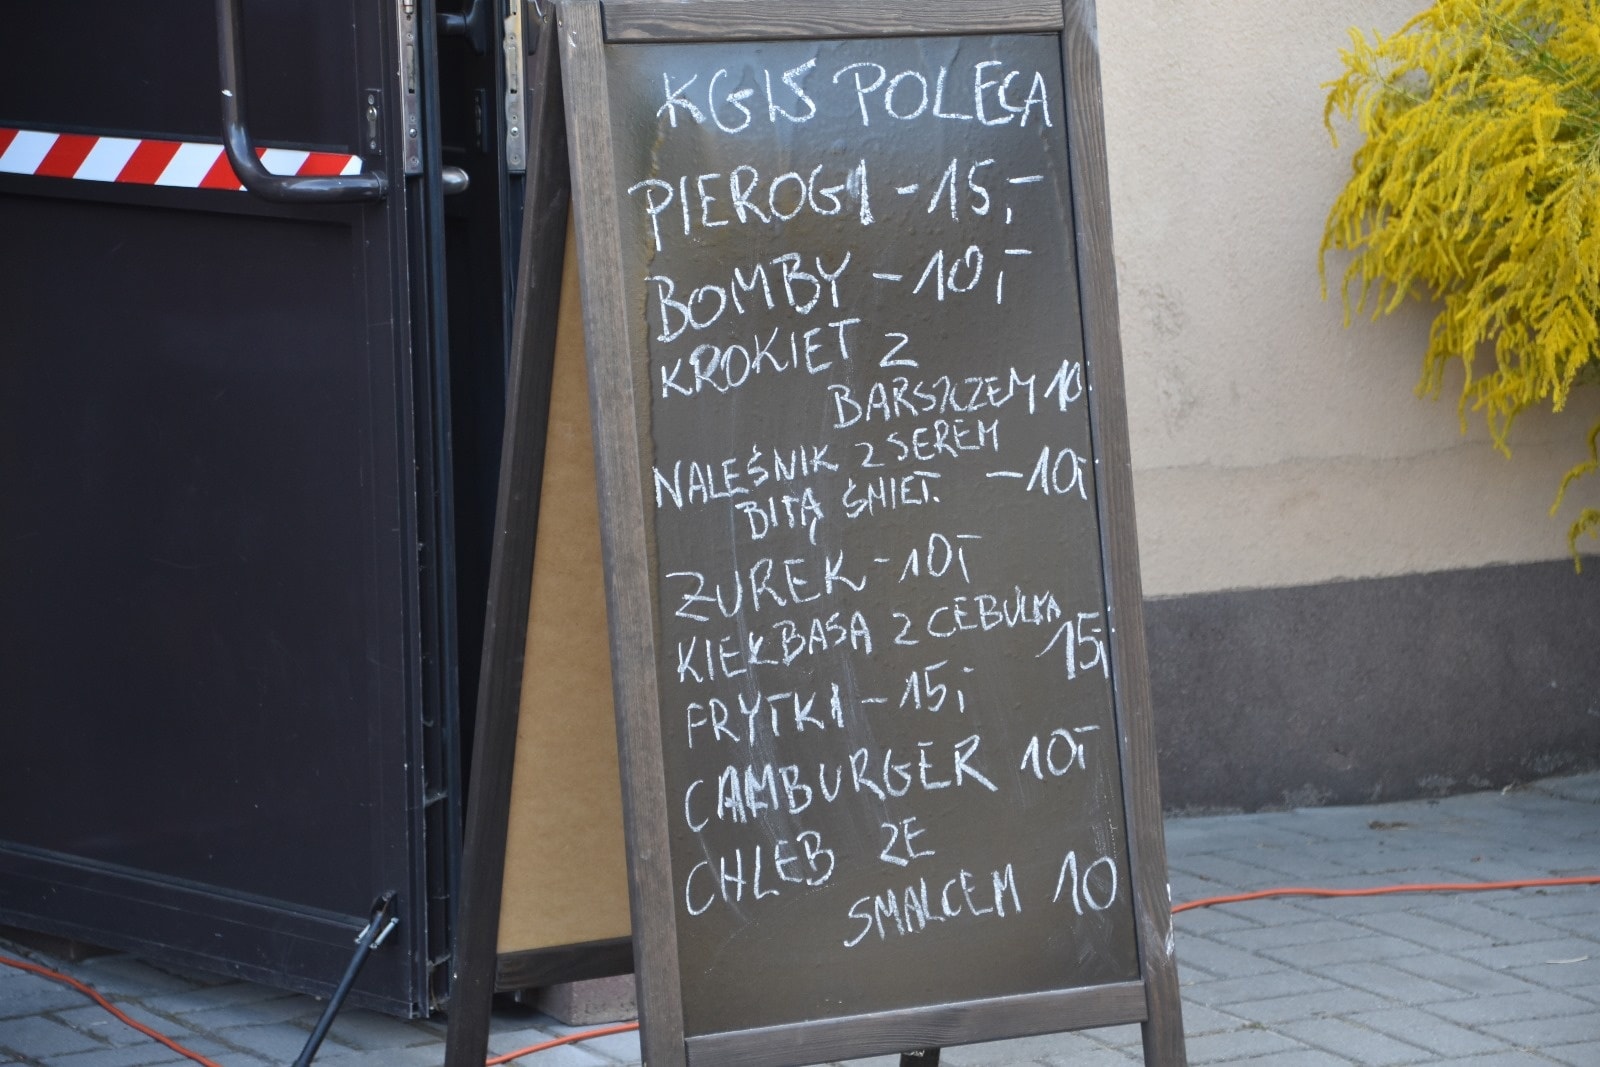 KGW POLECA
PIEROGI - 15,-
BOMBY - 10,-
KROKIET Z
BARSZCZEM 10
NALEŚNIK Z SEREM
BITĄ ŚMIET. - 10,-
ŻUREK - 10,-
KIEŁBASA Z CEBULKĄ
15,-
FRYTKI - 15,-
CAMBURGER 10,-
CHLEB ZE
SMALCEM 10